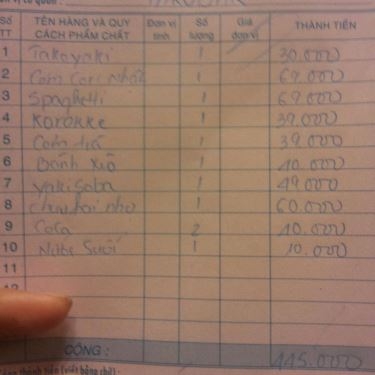 Số TT TÊN HÀNG VÀ QUY CÁCH PHẨM CHẤT Đơn vị tính Số lượng Giá đơn vị THÀNH TIỀN
1 Takoyaki 1 30.000
2 Cơm Cari Nhật 1 69.000
3 Spaghetti 1 69.000
4 Korokke 1 39.000
5 Cơm trà 1 39.000
6 Bánh Xiô 1 40.000
7 Yakisoba 1 49.000
8 nho 1 60.000
9 Coca 2 40.000
10 Nước Suối 1 10.000
11
CỘNG : 445.000